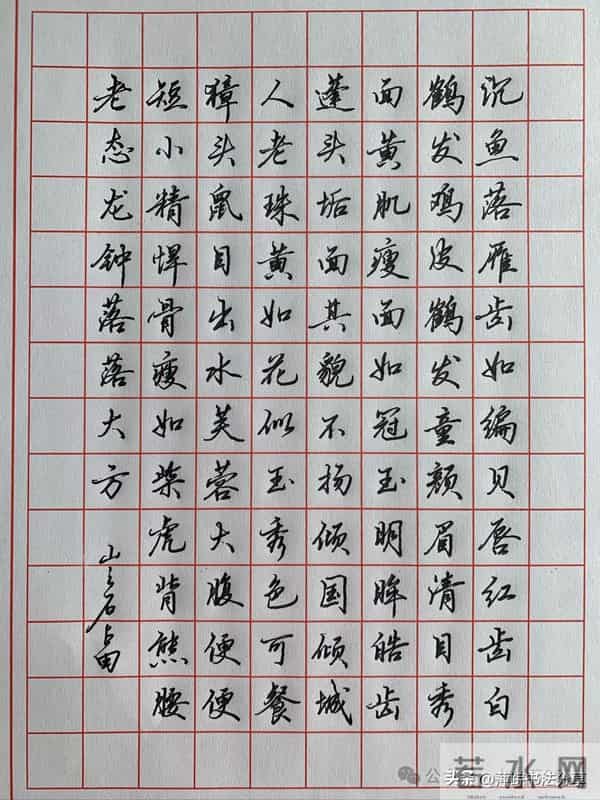 沉鱼落雁齿如编贝唇红齿白
鹤发鸡皮鹤发童颜眉清目秀
面黄肌瘦面如冠玉明眸皓齿
蓬头垢面其貌不扬倾国倾城
人老珠黄如花似玉秀色可餐
獐头鼠目出水芙蓉大腹便便
短小精悍骨瘦如柴虎背熊腰
老态龙钟落落大方
若水网
头条